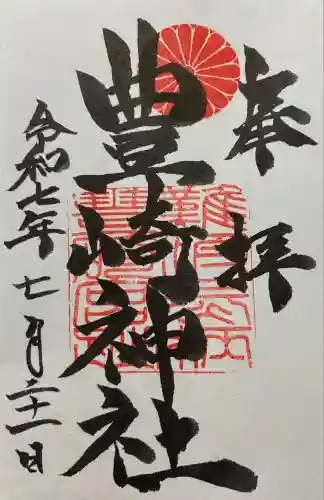 奉拝
豊崎神社
令和七年七月二十一日